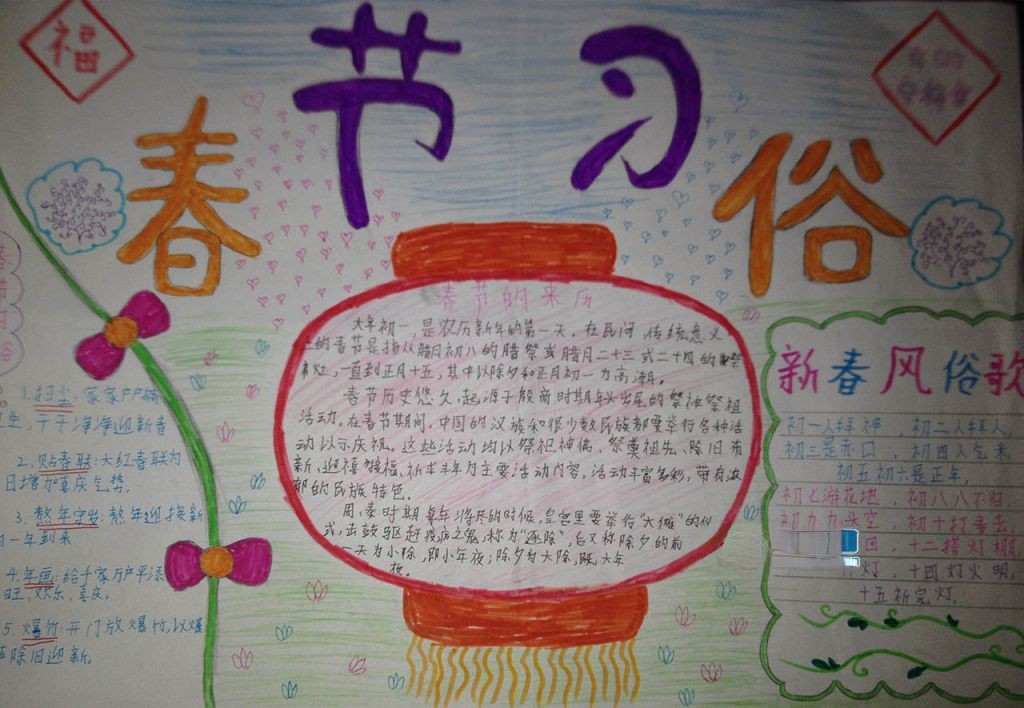 福
春节习俗
春节的来历
大年初一，是农历新年的第一天。在民间，传统意义
上的春节是指从腊月初八的腊祭或腊月二十三或二十四的祭
灶，一直到正月十五，其中以除夕和正月初一为高潮。
春节历史悠久，起源于殷商时期年头岁尾的祭神祭祖
活动。在春节期间，中国的汉族和很少数民族都要举行各种活
动以示庆祝。这些活动均以祭祀神佛、祭奠祖先、除旧布
新、迎禧接福、祈求丰年为主要活动内容。活动丰富多彩，带有浓
郁的民族特色。
周、秦时期每年将尽的时候，皇宫里要举行"大傩"的仪
式，击鼓驱赶疫病之鬼，称为"逐除"，后又称除夕的前
一天为小除，即小年夜；除夕为大除，即大年
夜。
1.扫尘：家家户户搞
卫生，干干净净迎新春
2.贴春联：大红春联为
日增加喜庆气势。
3.熬年守岁：熬年迎接新
一年到来
4.年画：给千家万户平添
旺、欢乐、喜庆。
5.爆竹：开门放爆竹，以爆
除旧迎新。
新春风俗歌
初一人拜神，初二人拜人，
初三是赤口，初四人乞米
初五初六是正年，
初七游花地，初八八不归，
初九九头空，初十打春去，
回，十二搭灯棚，
灯，十四灯火明，
十五祈完灯。